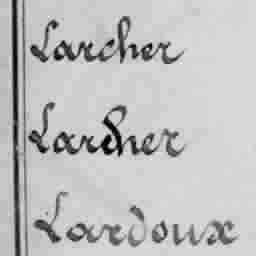 Larcher
Lardner
Lardoux